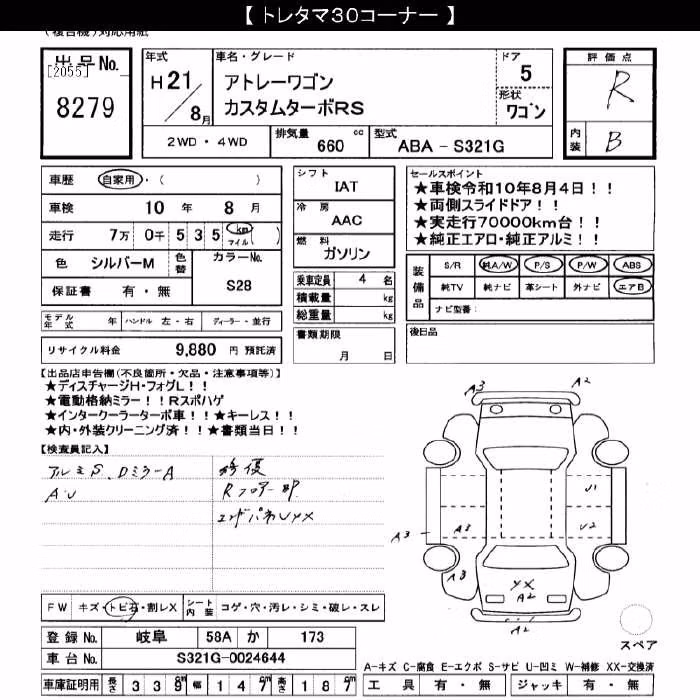 【 トレタマ30コーナー 】
(複合機)対応用紙
出品No.
[2055]
8279
年式
H21/8月
車名・グレード
アトレーワゴン
カスタムターボRS
ドア
5
形状
ワゴン
2WD・4WD
排気量
660 cc
型式
ABA - S321G
評価点
R
内装
B
車歴 自家用・( )
車検 10 年 8 月
走行 7万 0千 5 3 5 km マイル ( )
色 シルバーM 色替
カラーNo.
S28
保証書 有・無
シフト
IAT
冷房
AAC
燃料
ガソリン
乗車定員 4 名
積載量 kg
総重量 kg
セールスポイント
★車検令和10年8月4日!!
★両側スライドドア!!
★実走行70000km台!!
★純正エアロ・純正アルミ!!
装備品
S/R 純A/W P/S P/W ABS
純TV 純ナビ 革シート 外ナビ エアB
ナビ型番:
モデル年式 年 ハンドル 左・右 ディーラー・並行
リサイクル料金 9,880 円 預託済
書類期限
月 日
後日品
【出品店申告欄(不良箇所・欠品・注意事項等)】
★ディスチャージH・フォグL!!
★電動格納ミラー!!Rスポハゲ
★インタークーラーターボ車!!★キーレス!!
★内・外装クリーニング済!!★書類当日!!
【検査員記入】
アルミS、Dミラー A
A・U
修優
Rフロアー部
エンドパネUYX
A3
A2
U1
A3
A3
U2
A3
YX
A2
A2
スペア
FW キズ・トビ石・割レX
シート内装 コゲ・穴・汚レ・シミ・破レ・スレ
登録 No. 岐阜 58A か 173
車台 No. S321G-0024644
車庫証明用 長さ 3 3 9 cm 幅 1 4 7 cm 高さ 1 8 7 cm
A-キズ C-腐食 E-エクボ S-サビ U-凹ミ W-補修 XX-交換済
工具 有・無 ジャッキ 有・無